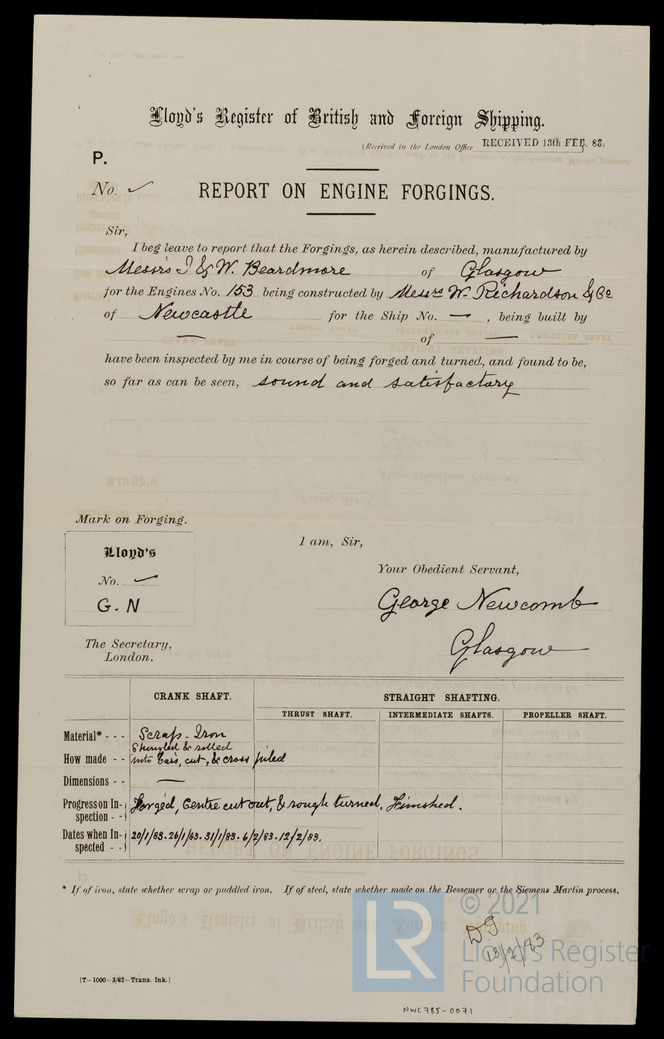 Lloyd's Register of British and Foreign Shipping.
(Received in the London Office RECEIVED 13th FEB. 83.
P.
No. ✓
REPORT ON ENGINE FORGINGS.
Sir,
I beg leave to report that the Forgings, as herein described, manufactured by
Messrs I & W. Beardmore of Glasgow
for the Engines No. 153 being constructed by Messrs W. Richardson & Co
of Newcastle for the Ship No. — , being built by
— of —
have been inspected by me in course of being forged and turned, and found to be,
so far as can be seen, sound and satisfactory
Mark on Forging.
Lloyd's
No. ✓
G. N
I am, Sir,
Your Obedient Servant,
George Newcomb
Glasgow
The Secretary,
London.
CRANK SHAFT. STRAIGHT SHAFTING.
THRUST SHAFT. INTERMEDIATE SHAFTS. PROPELLER SHAFT.
Material* - - - Scrap-Iron
How made - - Shingled & rolled
into bars, cut, & cross piled
Dimensions - - —
Progress on In-
spection - - Forged, Centre cut out, & rough turned. Finished.
Dates when In-
spected - - 20/1/83. 26/1/83. 31/1/83. 6/2/83. 12/2/83.
* If of iron, state whether scrap or puddled iron. If of steel, state whether made on the Bessemer or the Siemens Martin process.
13/2/83
LR
© 2021
Lloyd's Register
Foundation
[T—1000—3/82—Trans. Ink.]
NWC785-0071